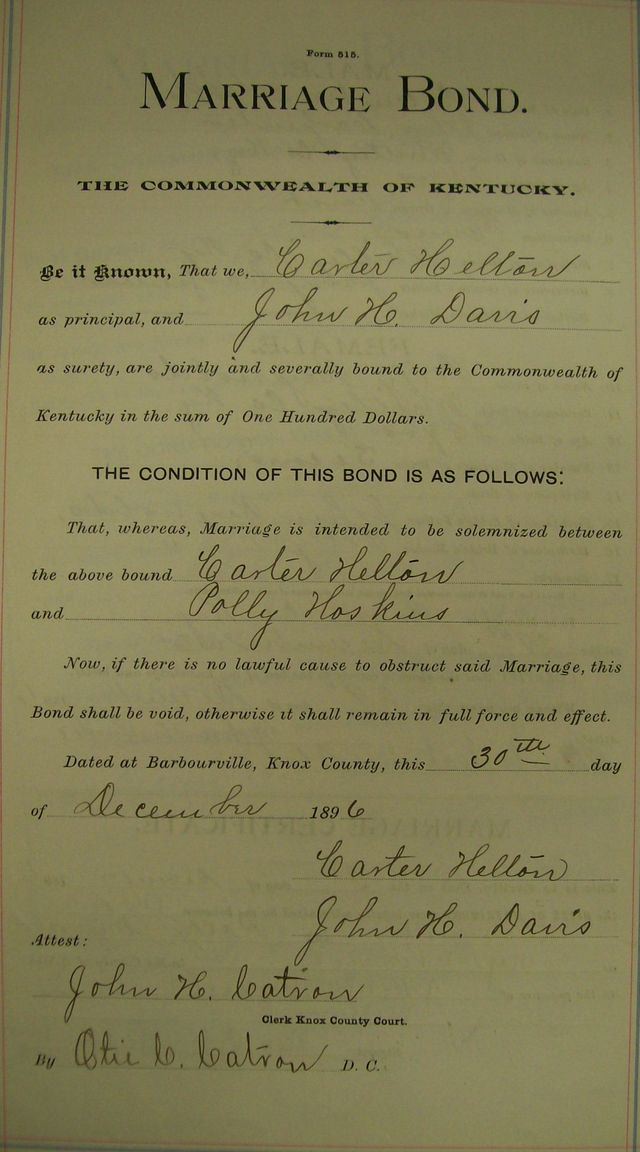 Form 515.
MARRIAGE BOND.
THE COMMONWEALTH OF KENTUCKY.
Be it Known, That we, Carter Helton
as principal, and John H. Davis
as surety, are jointly and severally bound to the Commonwealth of
Kentucky in the sum of One Hundred Dollars.
THE CONDITION OF THIS BOND IS AS FOLLOWS:
That, whereas, Marriage is intended to be solemnized between
the above bound Carter Helton
and Polly Hoskins
Now, if there is no lawful cause to obstruct said Marriage, this
Bond shall be void, otherwise it shall remain in full force and effect.
Dated at Barbourville, Knox County, this 30th day
of December 1896
Carter Helton
John H. Davis
Attest:
John H. Catron
Clerk Knox County Court.
By C. Catron D. C.